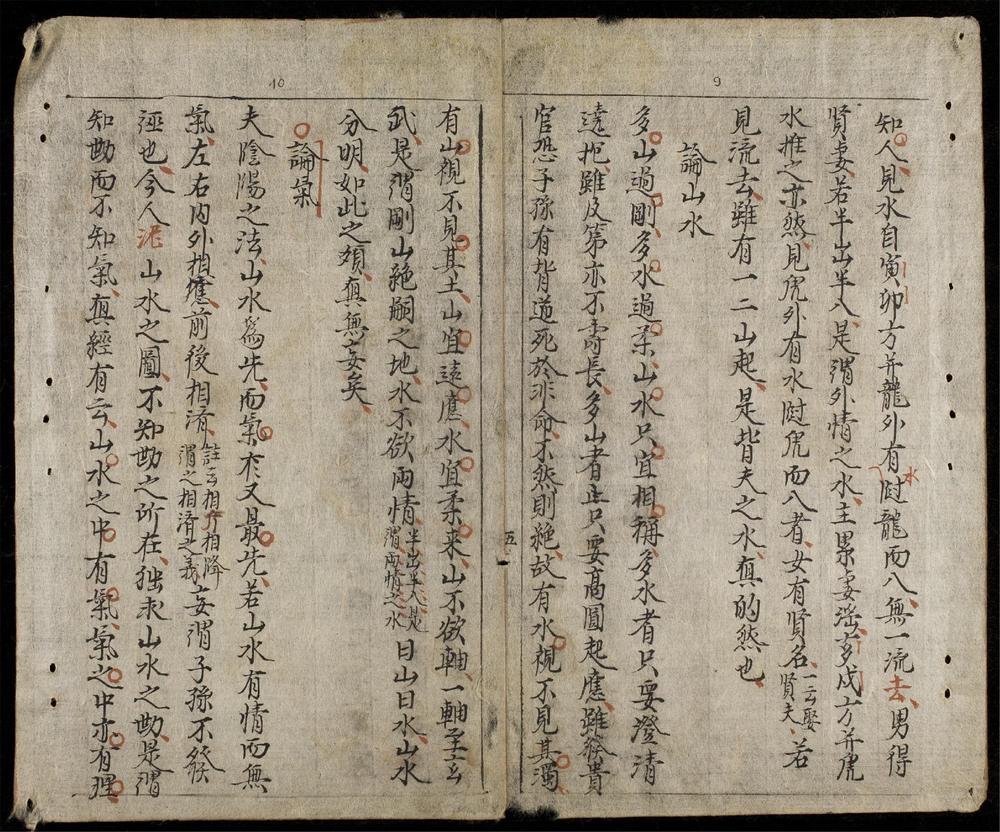 9
知人見水自寅卯方并龍外有水尅龍而入無一流去男得
賢妻若半出半入是謂外情之水主累妻淫多戌方并虎
水推之亦然見虎外有水尅虎而入者女有賢名一云娶賢夫若
見流去雖有一二山起是皆夫之水真的然也
論山水
多山過剛多水過柔山水只宜相稱多水者只要澄清
遠抱雖及第亦不壽長多山者止只要高圓起應雖發貴
官恐子孫有背逆死於非命不然則絶故有水視不見其濁
五
10
有山視不見其土山宜遠應水宜柔来山不欲軸一軸至玄
武是謂剛山絶嗣之地水不欲兩情半出半入是謂兩情之水曰山曰水山水
分明如此之類真無妄矣
論氣
夫陰陽之法山水爲先而氣亦又最先若山水有情而無
氣左右内外相應前後相済註云相升相降謂之相済之義妄謂子孫不發
誣也今人泥山水之圖不知勘之所在拙求山水之勘是謂
知勘而不知氣真經有云山水之中有氣氣之中亦有理